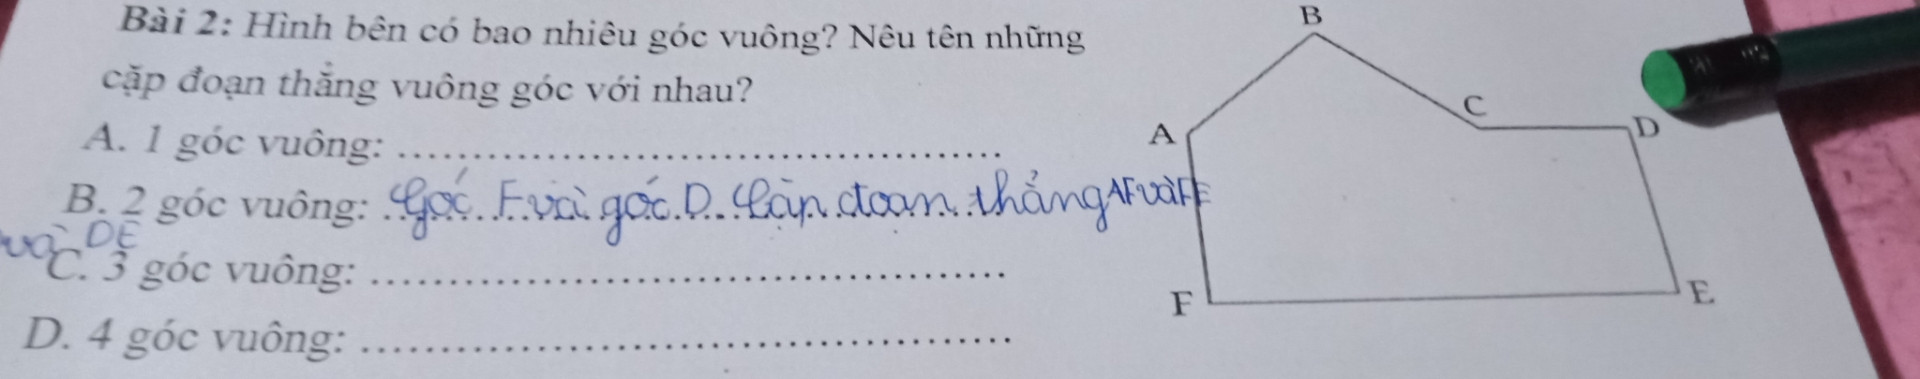 Bài 2: Hình bên có bao nhiêu góc vuông? Nêu tên những
cặp đoạn thẳng vuông góc với nhau?
A. 1 góc vuông: ......................................................
B. 2 góc vuông: Góc F và góc D. Cặp đoạn thẳng AF và FE
và DE
C. 3 góc vuông: ......................................................
D. 4 góc vuông: ......................................................
B
C
A
D
F
E